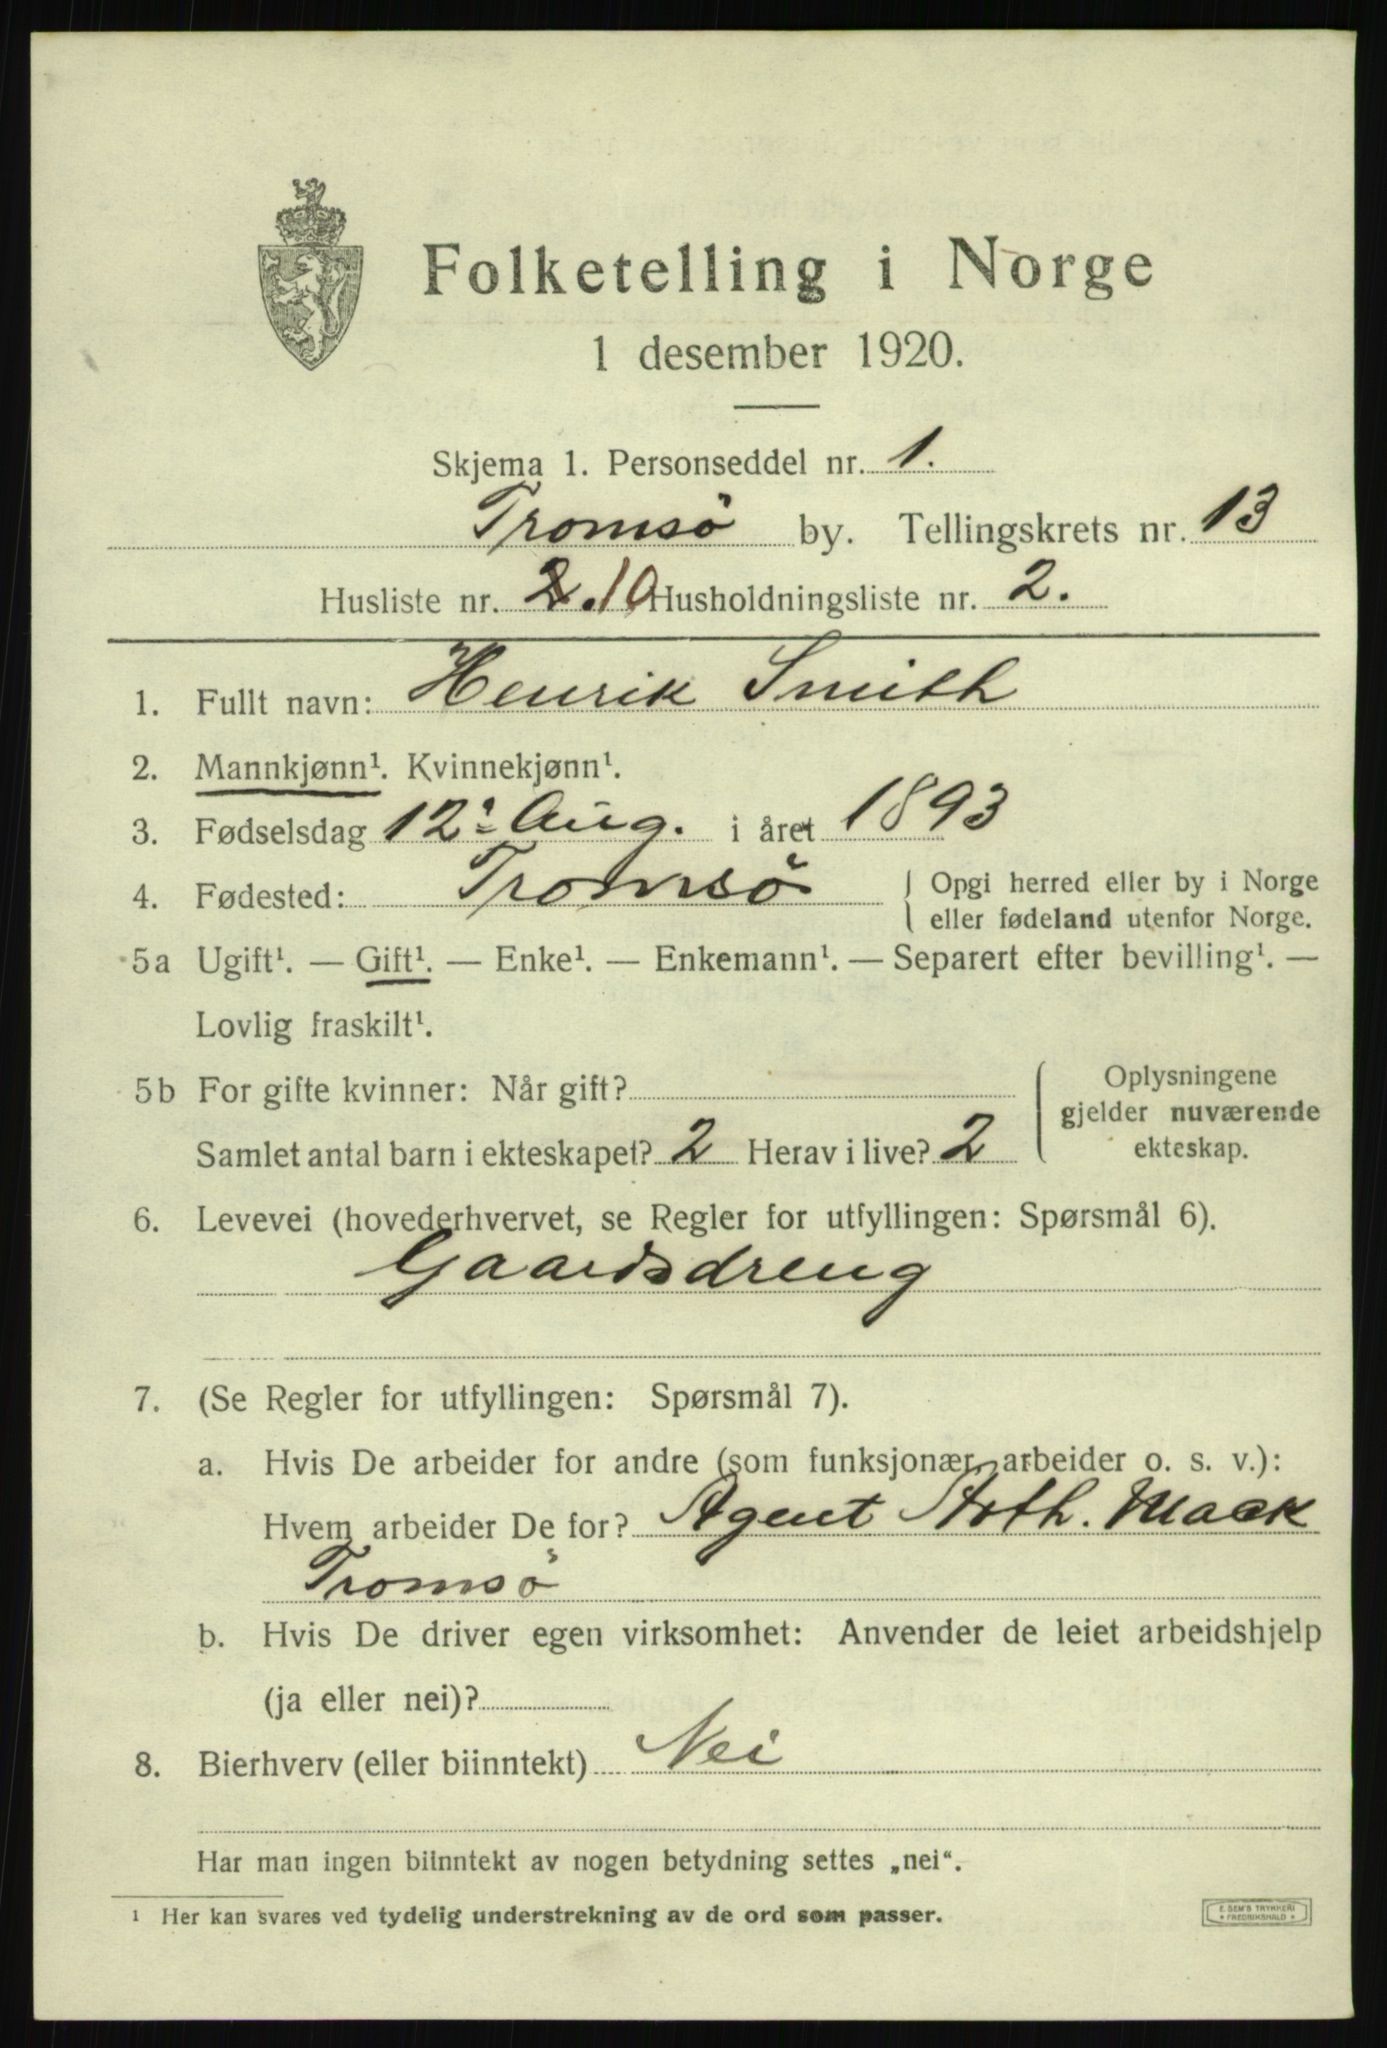 Folketelling i Norge
1 desember 1920.
Skjema 1. Personseddel nr. 1.
Tromsö by. Tellingskrets nr. 13
Husliste nr. 2. 10 Husholdningsliste nr. 2.
1. Fullt navn: Henrik Smith
2. Mannkjønn¹. Kvinnekjønn¹.
3. Fødselsdag 12. Aug. i året 1893
4. Fødested: Tromsö { Opgi herred eller by i Norge
eller fødeland utenfor Norge.
5a Ugift¹. — Gift¹. — Enke¹. — Enkemann¹. — Separert efter bevilling¹. —
Lovlig fraskilt¹.
5b For gifte kvinner: Når gift?
Samlet antal barn i ekteskapet? 2 Herav i live? 2
Oplysningene
gjelder nuværende
ekteskap.
6. Levevei (hovederhvervet, se Regler for utfyllingen: Spørsmål 6).
Gaardsdreng
7. (Se Regler for utfyllingen: Spørsmål 7).
a. Hvis De arbeider for andre (som funksjonær, arbeider o. s. v.):
Hvem arbeider De for? Agent Arth. Mack
Tromsö
b. Hvis De driver egen virksomhet: Anvender de leiet arbeidshjelp
(ja eller nei)?
8. Bierhverv (eller biinntekt) Nei
Har man ingen biinntekt av nogen betydning settes „nei“.
¹ Her kan svares ved tydelig understrekning av de ord som passer.
E. SEM'S TRYKKERI
* FREDRIKSHALD *